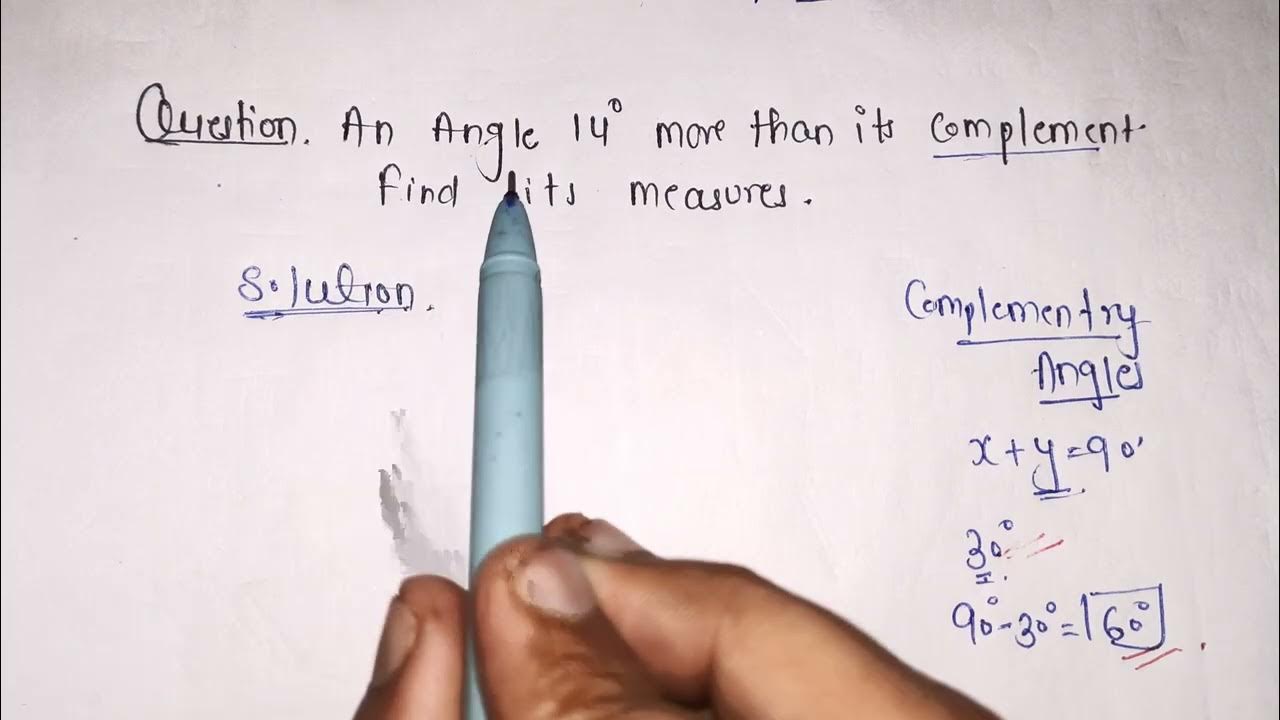 Question. An Angle 14° more than its complement.
Find its measures.
Solution.
Complementry
Angles
x + y = 90°
30°
90° - 30° = 60°